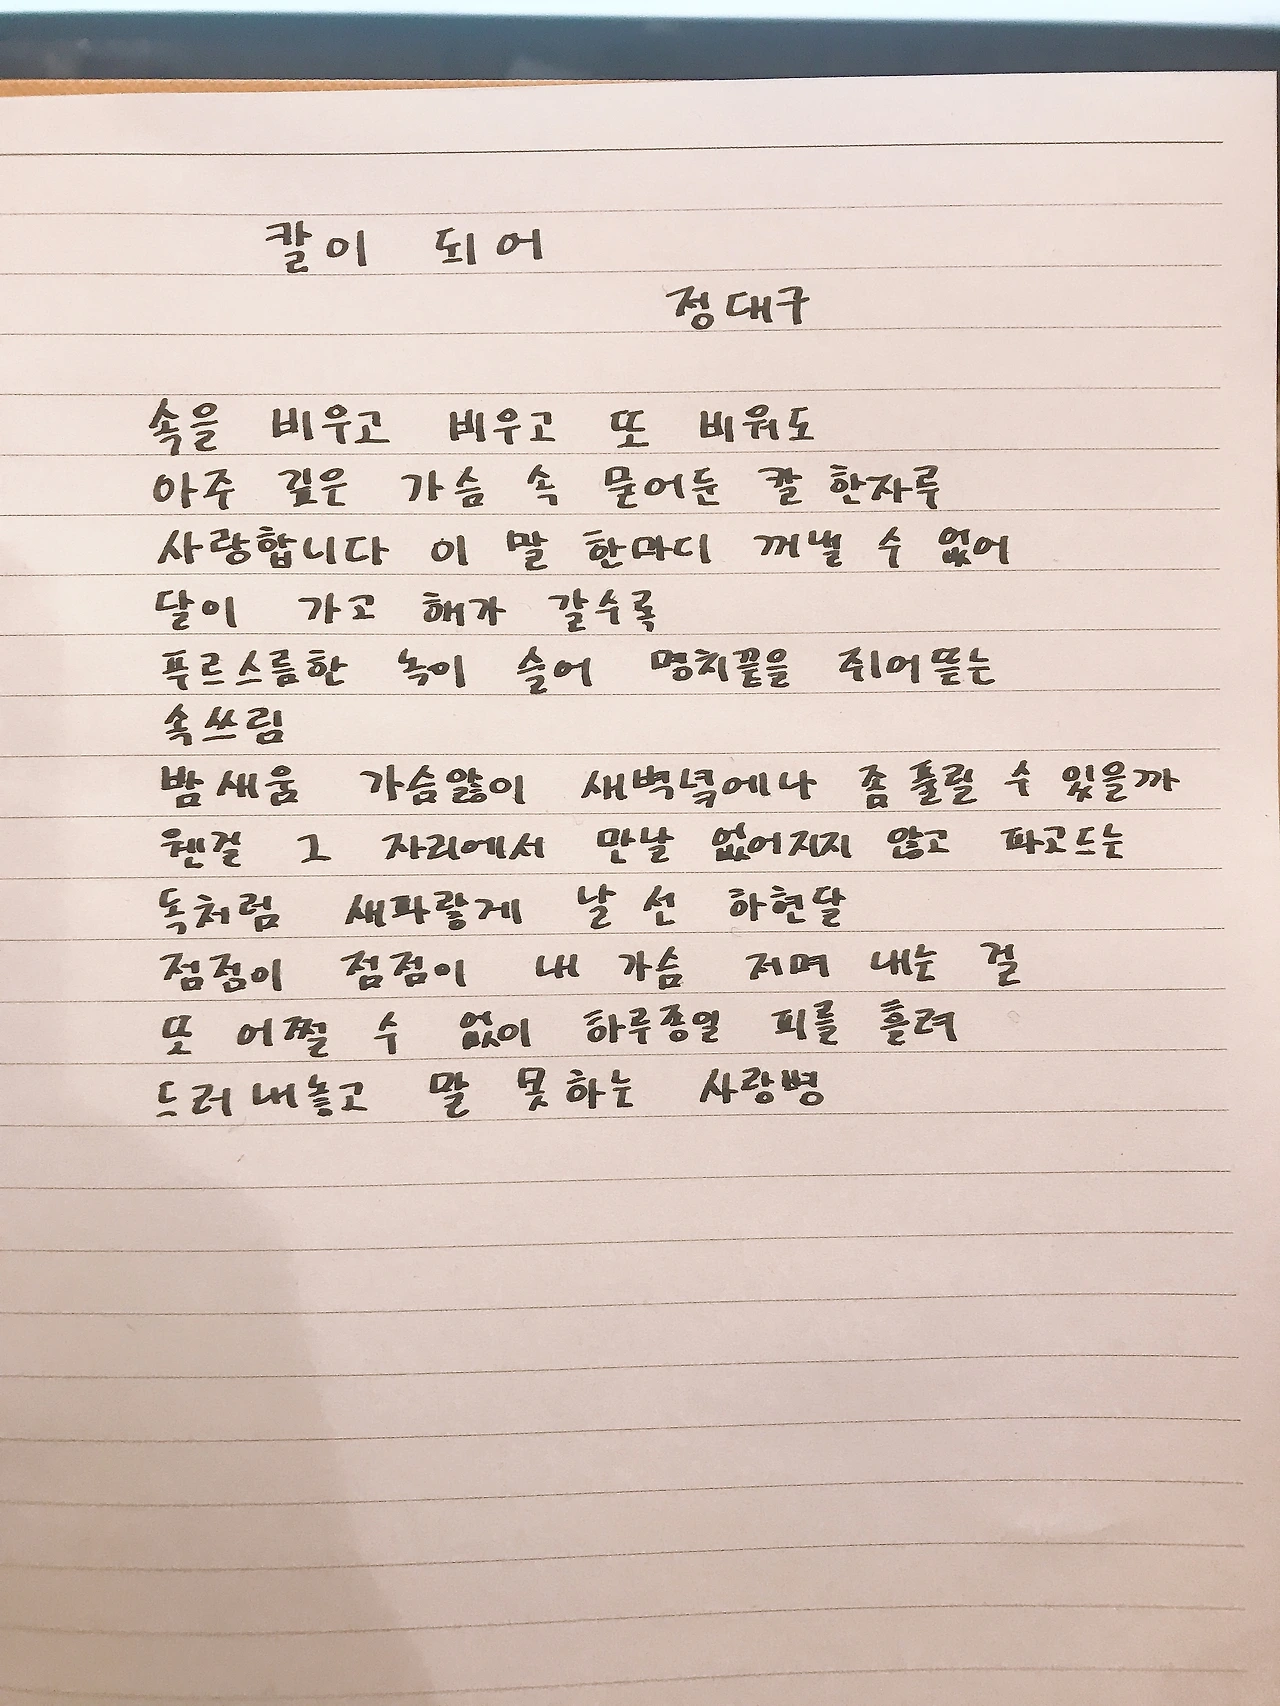 칼이 되어
정대구
속을 비우고 비우고 또 비워도
아주 깊은 가슴 속 묻어둔 칼 한자루
사랑합니다 이 말 한마디 꺼낼 수 없어
달이 가고 해가 갈수록
푸르스름한 녹이 슬어 명치끝을 쥐어뜯는
속쓰림
밤새움 가슴앓이 새벽녘에나 좀 풀릴 수 있을까
웬걸 그 자리에서 만날 없어지지 않고 파고드는
독처럼 새파랗게 날 선 하현달
점점이 점점이 내 가슴 저며 내는 걸
또 어쩔 수 없이 하루종일 피를 흘려
드러내놓고 말 못하는 사랑병